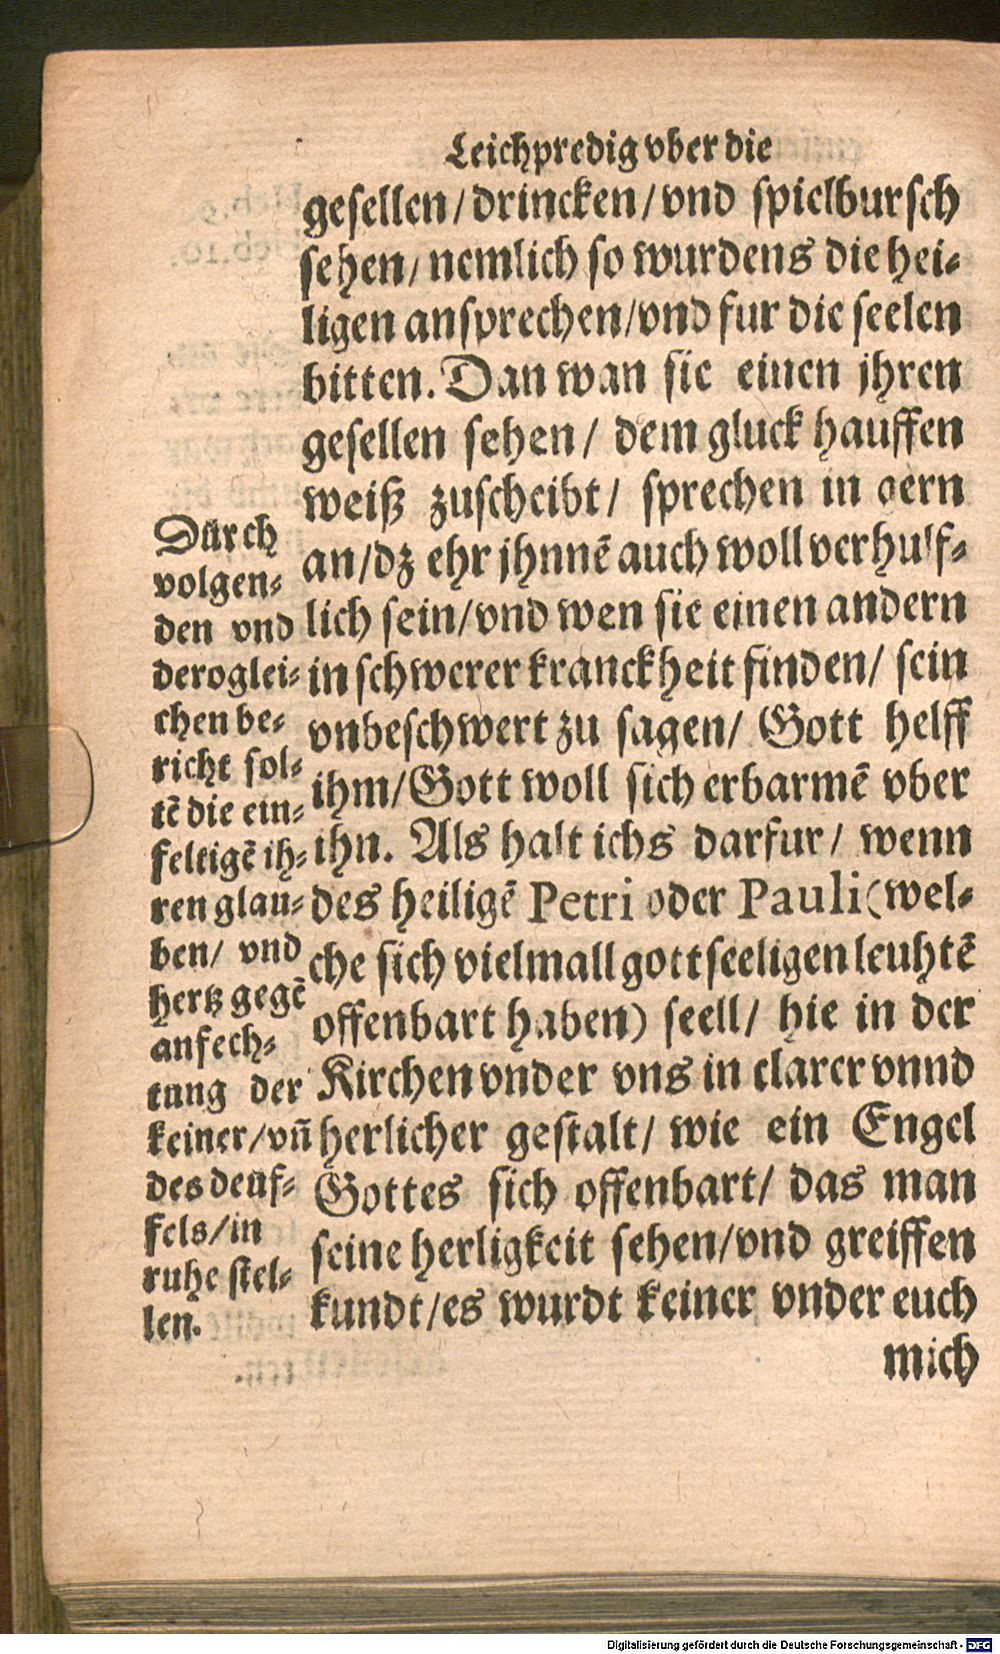 Leichpredig vber die
gesellen/drincken/vnd spielbursch
sehen/nemlich so wurdens die hei-
ligen ansprechen/vnd fur die seelen
bitten. Dan wan sie einen jhren
gesellen sehen/ dem gluck hauffen
weiß zuscheibt/ sprechen in gern
an/dz ehr jhnnē auch woll verhulf-
lich sein/vnd wen sie einen andern
in schwerer kranckheit finden/ sein
vnbeschwert zu sagen/ Gott helff
ihm/Gott woll sich erbarmē vber
ihn. Als halt ichs darfur/ wenn
des heiligē Petri oder Pauli (wel-
che sich vielmall gottseeligen leuhtē
offenbart haben) seell/ hie in der
Kirchen vnder vns in clarer vnnd
herlicher gestalt/ wie ein Engel
Gottes sich offenbart/ das man
seine herligkeit sehen/vnd greiffen
kundt/es wurdt keiner vnder euch
mich
Dürch
volgen-
den vnd
deroglei-
chen be-
richt sol-
tē die ein-
feltigē ih-
ren glau-
ben/ vnd
hertz gegē
anfech-
tung der
keiner/vñ
des deüf-
fels/in
ruhe stel-
len.
Digitalisierung gefördert durch die Deutsche Forschungsgemeinschaft - DFG